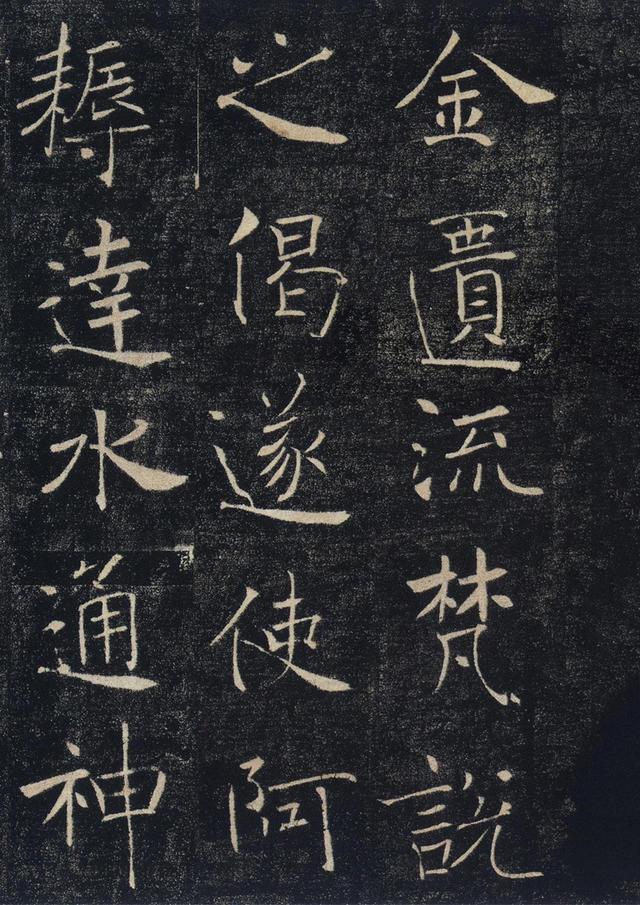 金遺流梵說
之偈遂使阿
耨達水通神